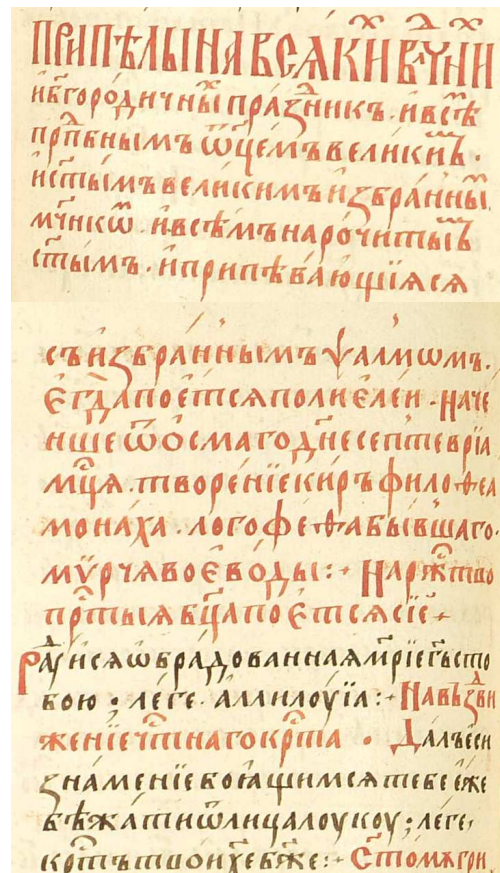 ПРИПѢЛЫ НА ВСѦКЇИ ВЛⷣЧНИ
и бг҃ородичныⷯ праꙁⷣникъ · и всѣⷨ
прпⷣбнымъ ѿцемъ великиⷨ ·
и ст҃ымъ великимъ и ꙁбранныⷨ ·
мч҃нкѡⷨ · и всѣмъ нарочитыⷨ
ст҃ымъ · и припѣваюшїѧсѧ
съ иꙁбраннымъ ѱалмѡмъ ·
Єгдⷣа поєтсѧ полиєлеи · Наче
нше ѿ осмаго дн҃е септеврїа
мцⷭ҇а · творенїе киръ филоѳеа
монаха · логофеѳа бывшаго ·
мѵрчѧ воєводы :· На рⷤⷣтво
прⷭ҇тыѧ бц҃а поєтсѧ сїе ·
Раⷣуисѧ ѡбрадованнаѧ мр҃їе гь҃ с то
бою · леге · аллилоуїа :· На въꙁдви
женїе чⷭ҇тнаго крⷭ҇та · Далъ еси
ꙁнаменїе боѧщимсѧ тебе єже
бѣжати ѿ лица лоукоу ; леге ·
крⷭ҇тъ твои хе҃ бж҃е :· Ст҃омѧ гри